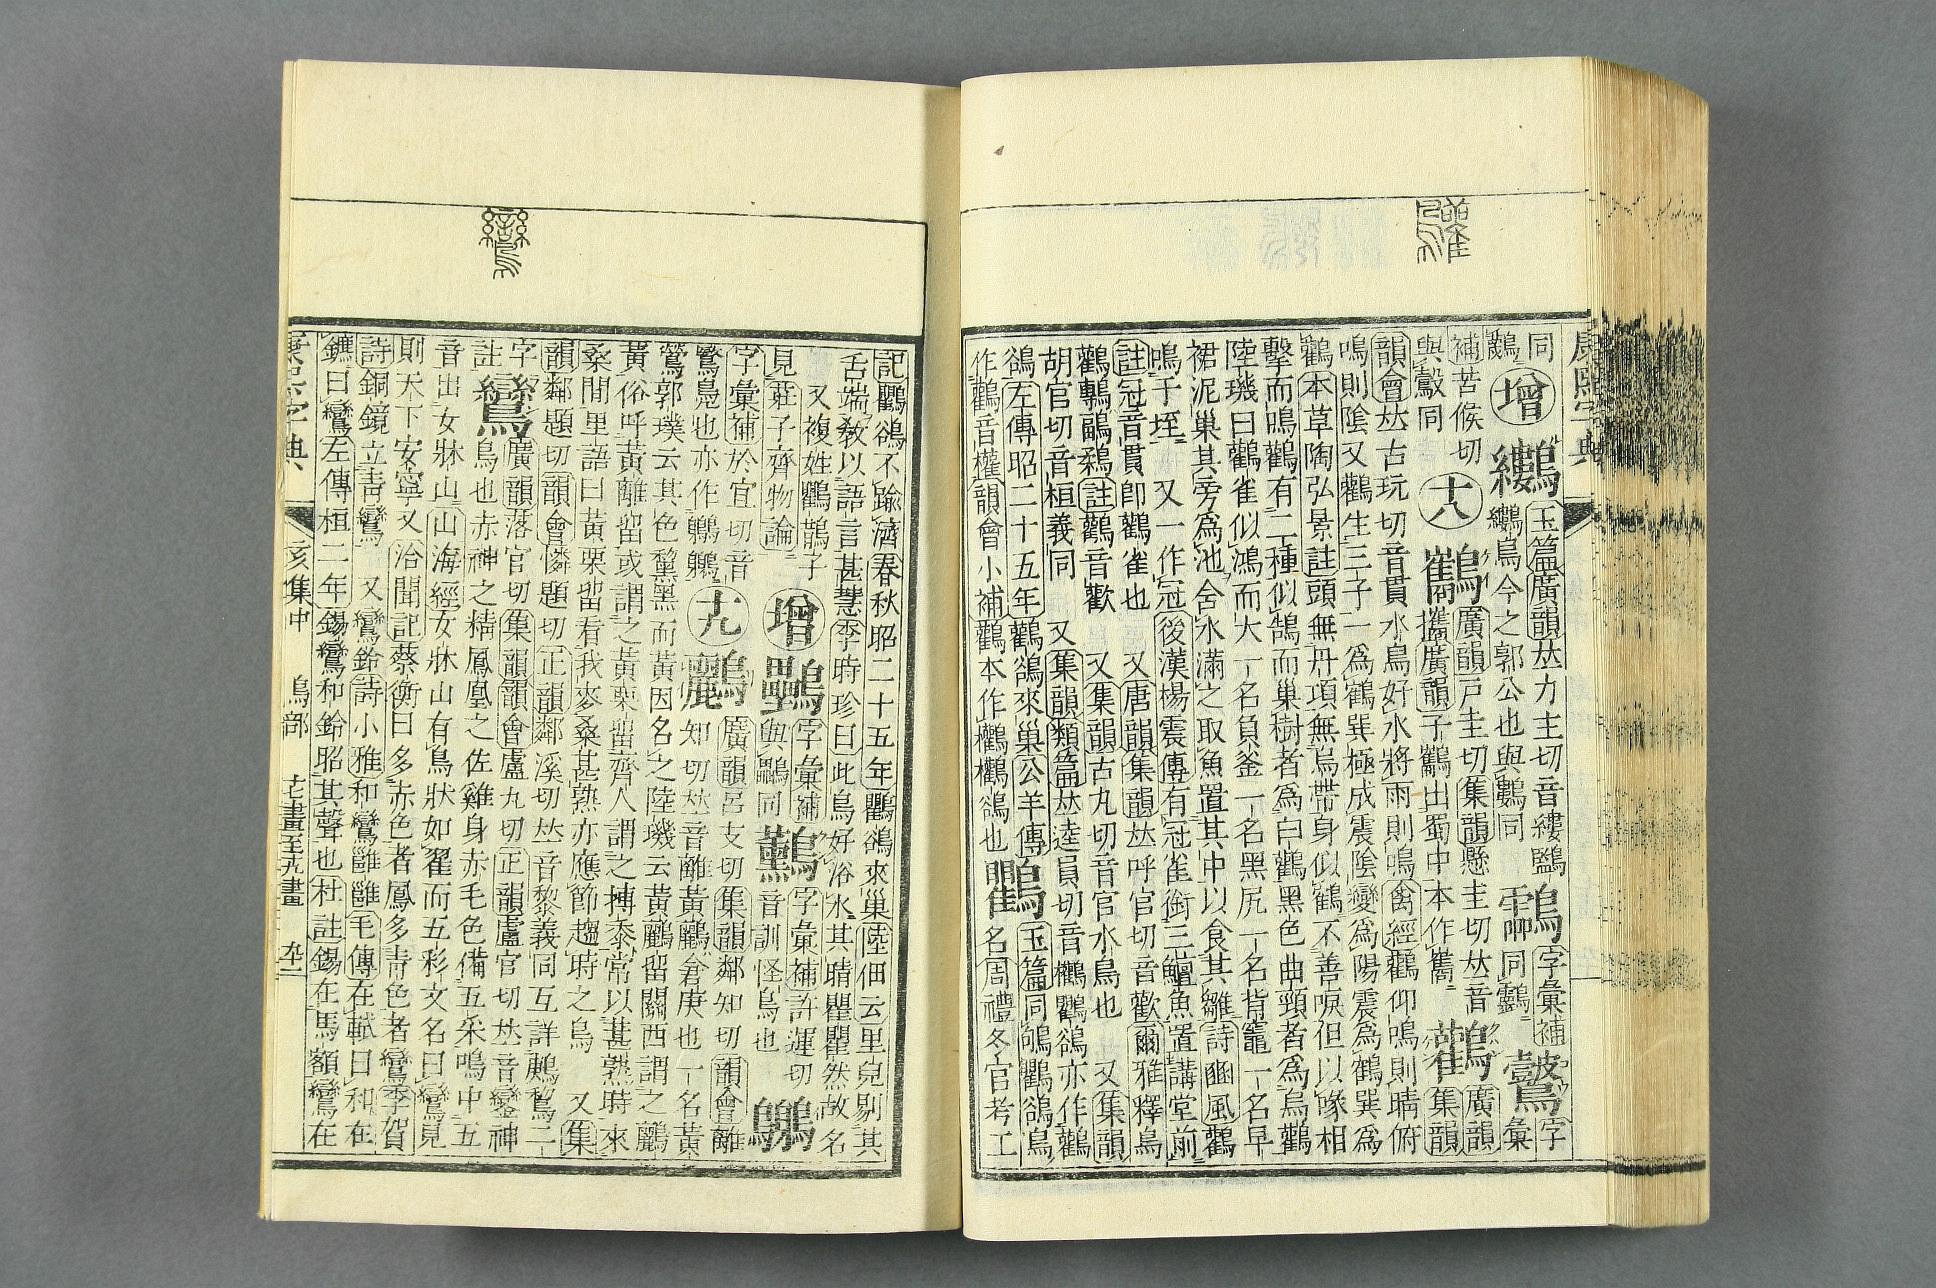 康熙字典
同
增
玉篇廣韻𠀤力主切音縷鷖
鳥今之郭公也與鸚同
字彙補
同
字
彙
補苦候切
與鷇同
十八
廣韻戸圭切集韻懸圭切𠀤音
攜廣韻子鸛出蜀中本作巂
鸛
廣韻
集韻
韻會𠀤古玩切音貫水鳥好水將雨則鳴禽經鸛仰鳴則晴俯
鳴則陰又鸛生三子一爲鶴巽極成震陰變爲陽震爲鶴巽爲
鸛本草陶弘景註頭無丹項無烏帶身似鶴不善唳但以喙相
擊而鳴鸛有二種似鵠而巢樹者爲白鸛黑色曲頸者爲烏鸛
陸璣曰鸛雀似鴻而大一名負釜一名黑尻一名背竈一名早
裙泥巢其旁爲池含水滿之取魚置其中以食其雛詩豳風鸛
鳴于垤 又一作冠後漢楊震傳有冠雀銜三鱣魚置講堂前
註冠音貫即鸛雀也 又唐韻集韻𠀤呼官切音歡爾雅釋鳥
鸛鷒鶝鶔註鸛音歡 又集韻古丸切音官水鳥也 又集韻
胡官切音桓義同 又集韻類篇𠀤逵員切音權鸜鵒亦作鸛
鵒左傳昭二十五年鸛鵒來巢公羊傳
作鸛音權韻會小補鸛本作鸜鸜鵒也
鸜
玉篇同鴝鸜鵒鳥
名周禮冬官考工
記鸜鵒不踰濟春秋昭二十五年鸜鵒來巢陸佃云里兒剔其
舌端敎以語言甚慧李時珍曰此鳥好浴水其睛瞿瞿然故名
又複姓鸜鵲子
見莊子齊物論
增
字彙補
與鸓同
字彙補許運切
音訓怪鳥也
字彙補於宜切音
鷖鳬也亦作鷖
十九
鸝
廣韻呂支切集韻鄰知切韻會離
知切𠀤音離黃鸝倉庚也一名黃
鶯郭璞云其色黧黑而黃因名之陸璣云黃鸝留關西謂之鸝
黃俗呼黃離留或謂之黃栗留齊人謂之摶黍常以葚熟時來
桑閒里語曰黃栗留看我麥桑葚熟亦應節趨時之鳥 又集
韻鄰題切韻會憐題切正韻鄰溪切𠀤音黎義同互詳鵹鶩二
字
註
鸞
廣韻落官切集韻韻會盧丸切正韻盧官切𠀤音鑾神
鳥也赤神之精鳳凰之佐雞身赤毛色備五采鳴中五
音出女牀山山海經女牀山有鳥狀如翟而五彩文名曰鸞見
則天下安寧又洽聞記蔡衡曰多赤色者鳳多靑色者鸞李賀
詩銅鏡立靑鸞 又鸞鈴詩小雅和鸞雝雝毛傳在軾曰和在
鑣曰鸞左傳桓二年鍚鸞和鈴昭其聲也杜註鍚在馬額鸞在
康熙字典
亥集中 鳥部 十七畫至十九畫 九二